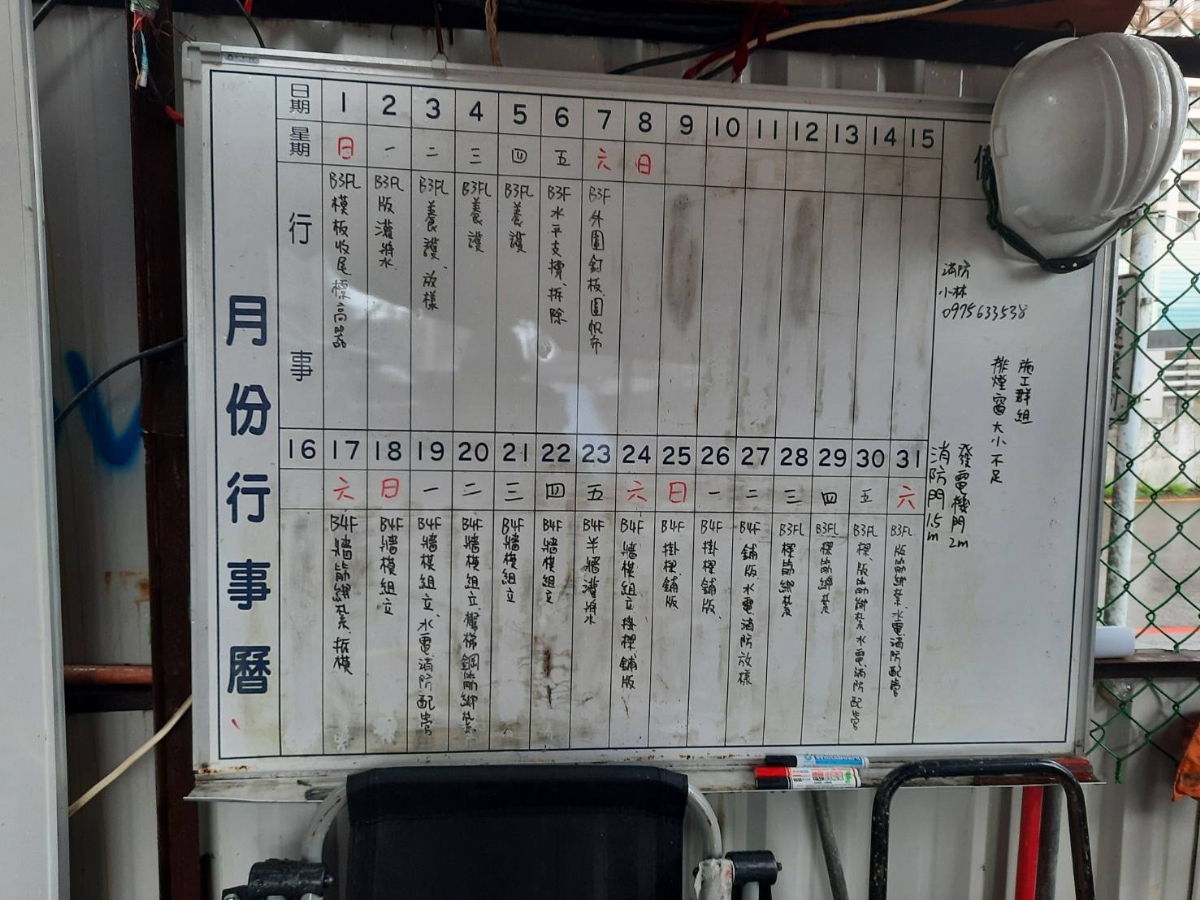 月份行事曆
日期 1 2 3 4 5 6 7 8 9 10 11 12 13 14 15
星期 日 一 二 三 四 五 六 日
行事
B3FL 模板收尾 標高器
B3FL 版灌漿水
B3FL 養護、放樣
B3FL 養護
B3FL 養護
B3F 水平支撐、拆除
B3F 外圍釘板圍帆布
16 17 18 19 20 21 22 23 24 25 26 27 28 29 30 31
六 日 一 二 三 四 五 六 日 一 二 三 四 五 六
B4F 牆筋綁紮、拆模
B4F 牆模組立
B4F 牆模組立、水電消防配管
B4F 牆模組立、樓梯鋼筋綁紮
B4F 牆模組立
B4F 牆模組立
B4F 半牆灌漿水
B4F 牆模組立、掛樑鋪版
B4F 掛樑鋪版
B4F 掛樑鋪版、
B4F 鋪版、水電消防放樣
B3FL 樑筋綁紮
B3FL 樑筋綁紮
B3FL 樑、版筋綁紮、水電消防配管
B3FL 版筋綁紮、水電消防配管
消防
小林
0975633538
施工群組
排煙窗大小不足
發電機門 2m
消防門 1.5m